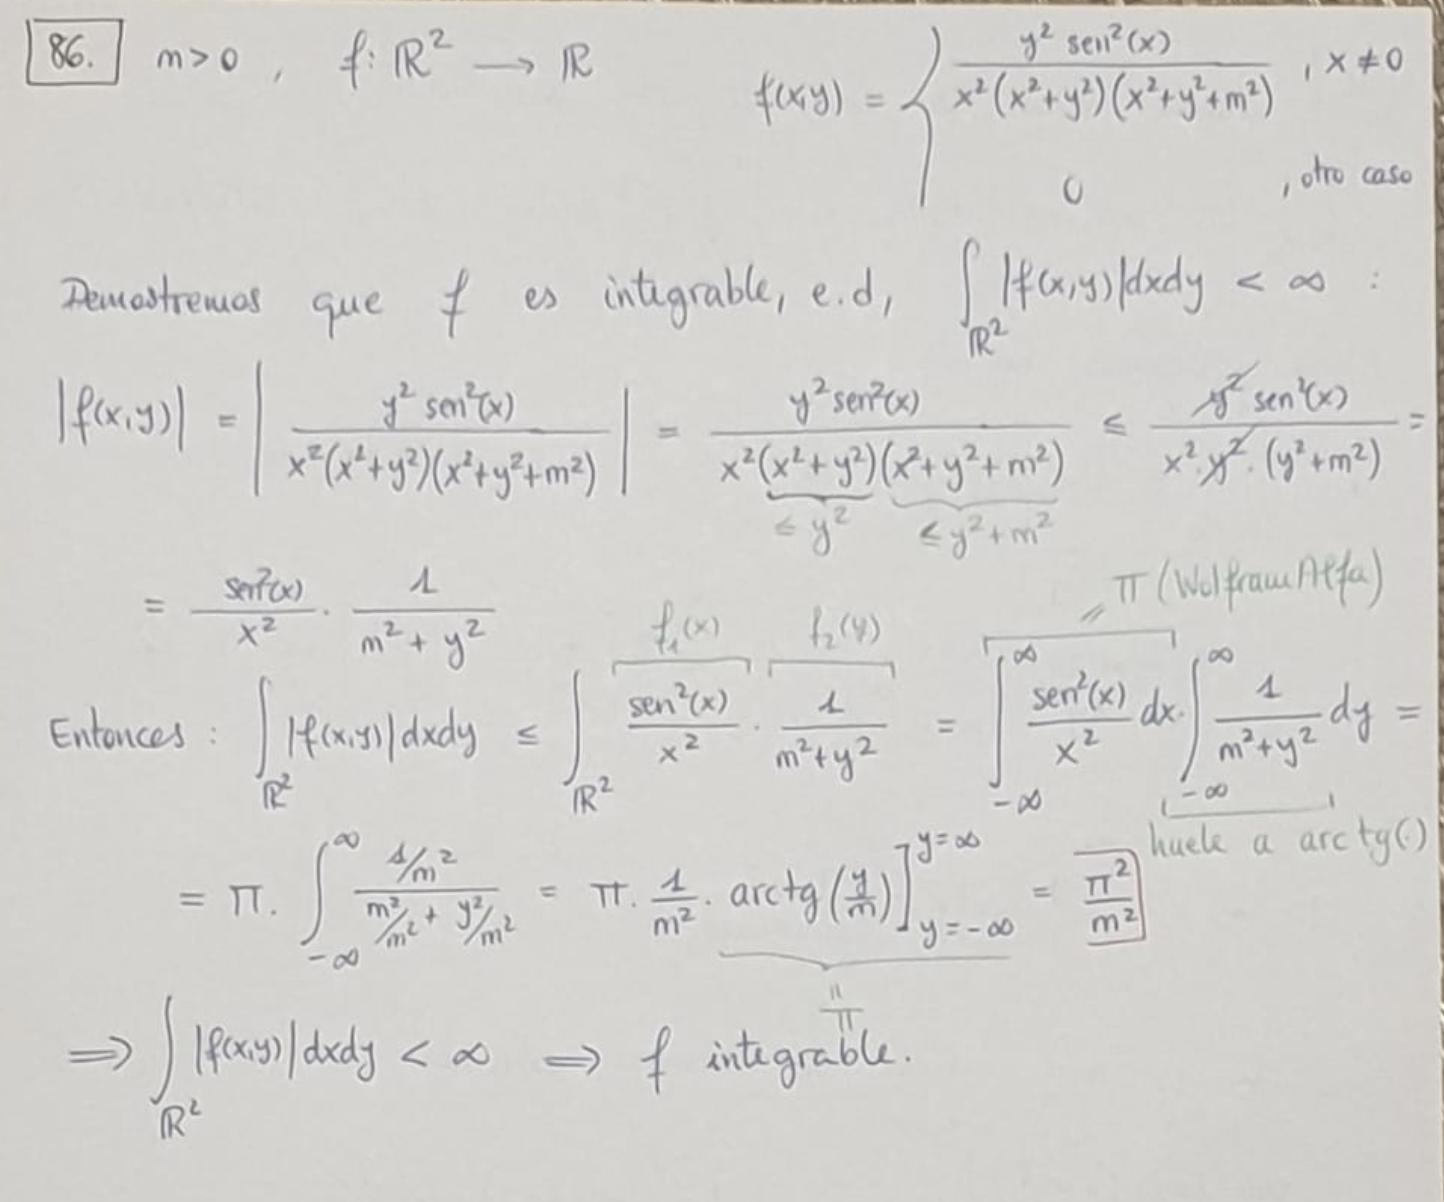 86. m>0 , f: ℝ² → ℝ f(x,y) = { y² sen²(x) / x²(x²+y²)(x²+y²+m²) , x ≠ 0
0 , otro caso
Demostremos que f es integrable, e.d, ∫_ℝ² |f(x,y)|dxdy < ∞ :
|f(x,y)| = | y² sen²(x) / x²(x²+y²)(x²+y²+m²) | = y² sen²(x) / x²(x²+y²)(x²+y²+m²) ≤ y² sen²(x) / x²·y²·(y²+m²) =
≤ y² ≤ y²+m²
= sen²(x)/x² · 1/(m²+y²)
f₁(x) f₂(y) = π (WolframAlfa)
Entonces : ∫_ℝ² |f(x,y)|dxdy ≤ ∫_ℝ² sen²(x)/x² · 1/(m²+y²) = ∫_{-∞}^{∞} sen²(x)/x² dx · ∫_{-∞}^{∞} 1/(m²+y²) dy =
huele a arctg(·)
= π · ∫_{-∞}^{∞} (1/m²)/(m²/m² + y²/m²) = π · 1/m² · arctg(y/m)]_{y=-∞}^{y=∞} = π²/m²
= π
⇒ ∫_ℝ² |f(x,y)|dxdy < ∞ ⇒ f integrable.